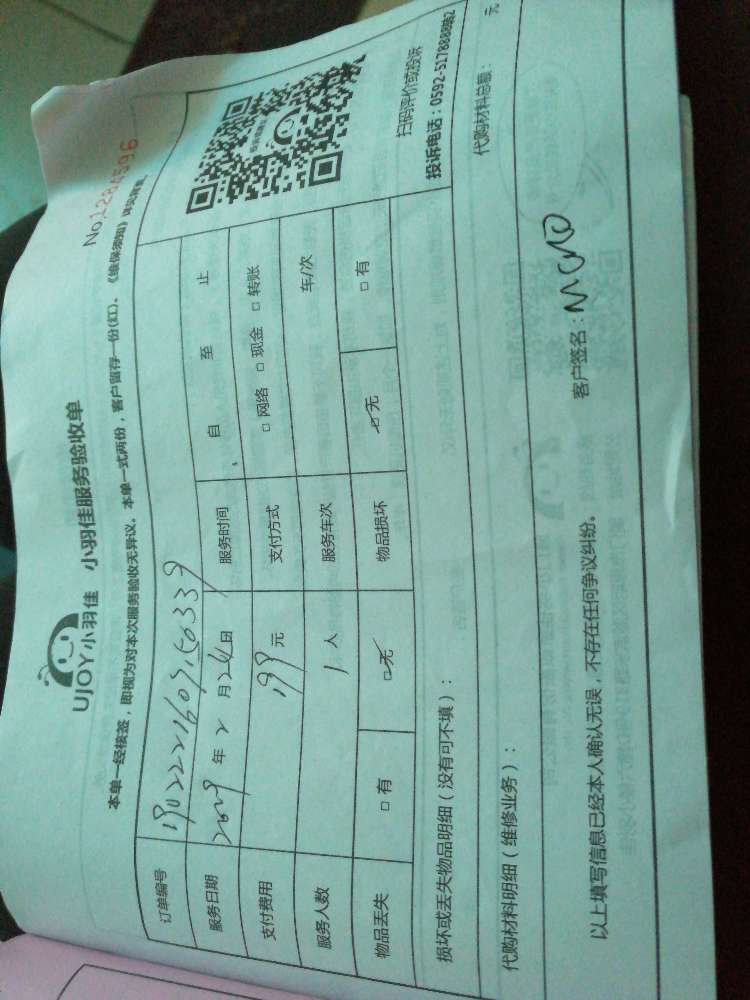 UJOY小羽佳 小羽佳服务验收单
No.1284596
本单一经接签，即视为对本次服务验收无异议。本单一式两份，客户留存一份(红)、《维保须知》详见背面。
订单编号 1902221609150339
服务日期 2019年2月24日 服务时间 自 至 止
支付费用 199元 支付方式 □网络 □现金 □转账
服务人数 1人 服务车次 车/次
物品丢失 □有 ☑无 物品损坏 ☑无 □有
扫码评价或投诉
投诉电话：0592-5178888转2
损坏或丢失物品明细（没有可不填）：
代购材料明细（维修业务）： 代购材料总额： 元
以上填写信息已经本人确认无误，不存在任何争议纠纷。 客户签名：